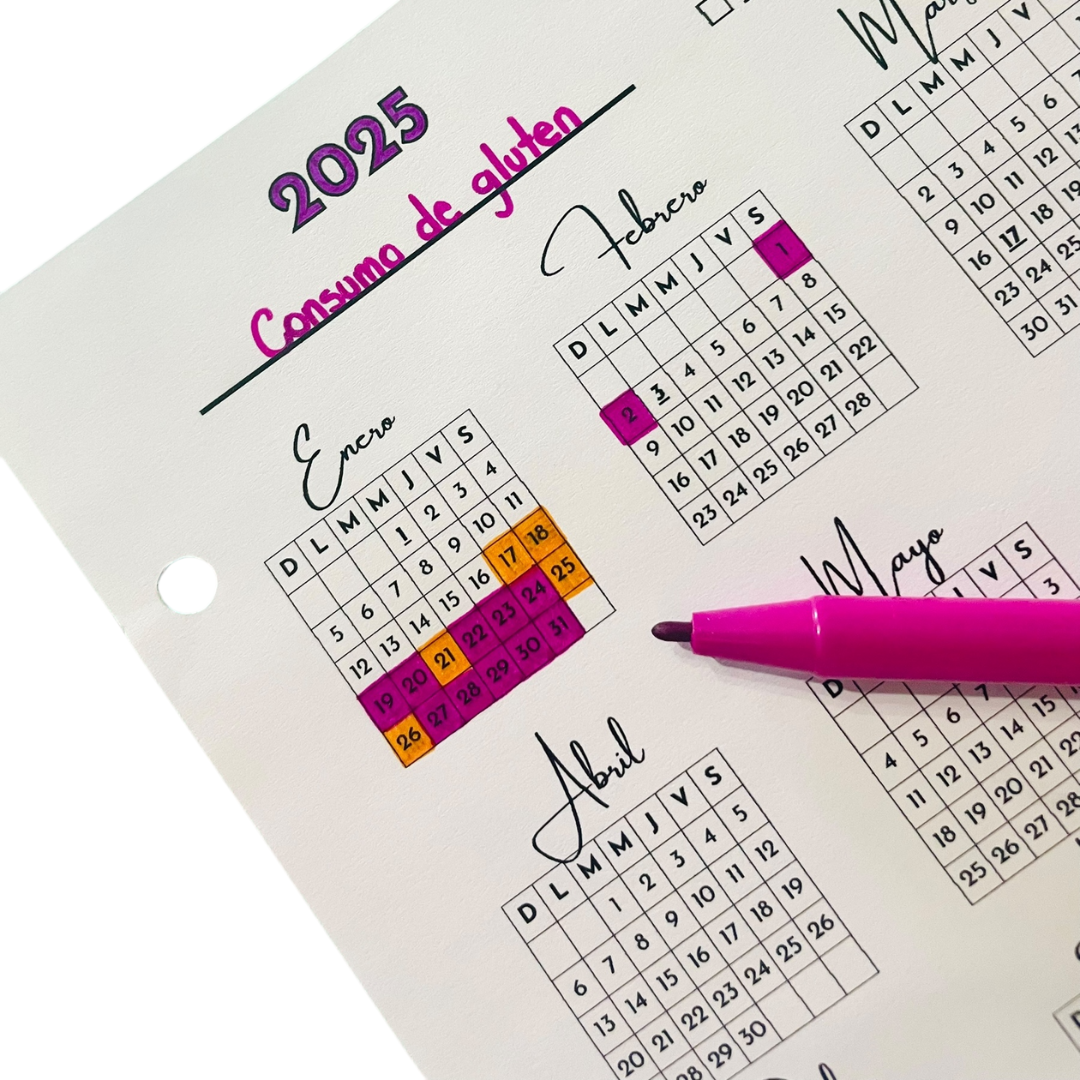 2025
Consumo de gluten
Enero
D L M M J V S
1 2 3 4
5 6 7 8 9 10 11
12 13 14 15 16 17 18
19 20 21 22 23 24 25
26 27 28 29 30 31
Febrero
D L M M J V S
1
2 3 4 5 6 7 8
9 10 11 12 13 14 15
16 17 18 19 20 21 22
23 24 25 26 27 28
D L M M J V
2 3 4 5 6
9 10 11 12
16 17 18 19
23 24 25
30 31
Abril
D L M M J V S
1 2 3 4 5
6 7 8 9 10 11 12
13 14 15 16 17 18 19
20 21 22 23 24 25 26
28 29 30
Mayo
D V S
3
4 5 6 7
11 12 13 14 15
18 19 20 21 22
25 26 27 28